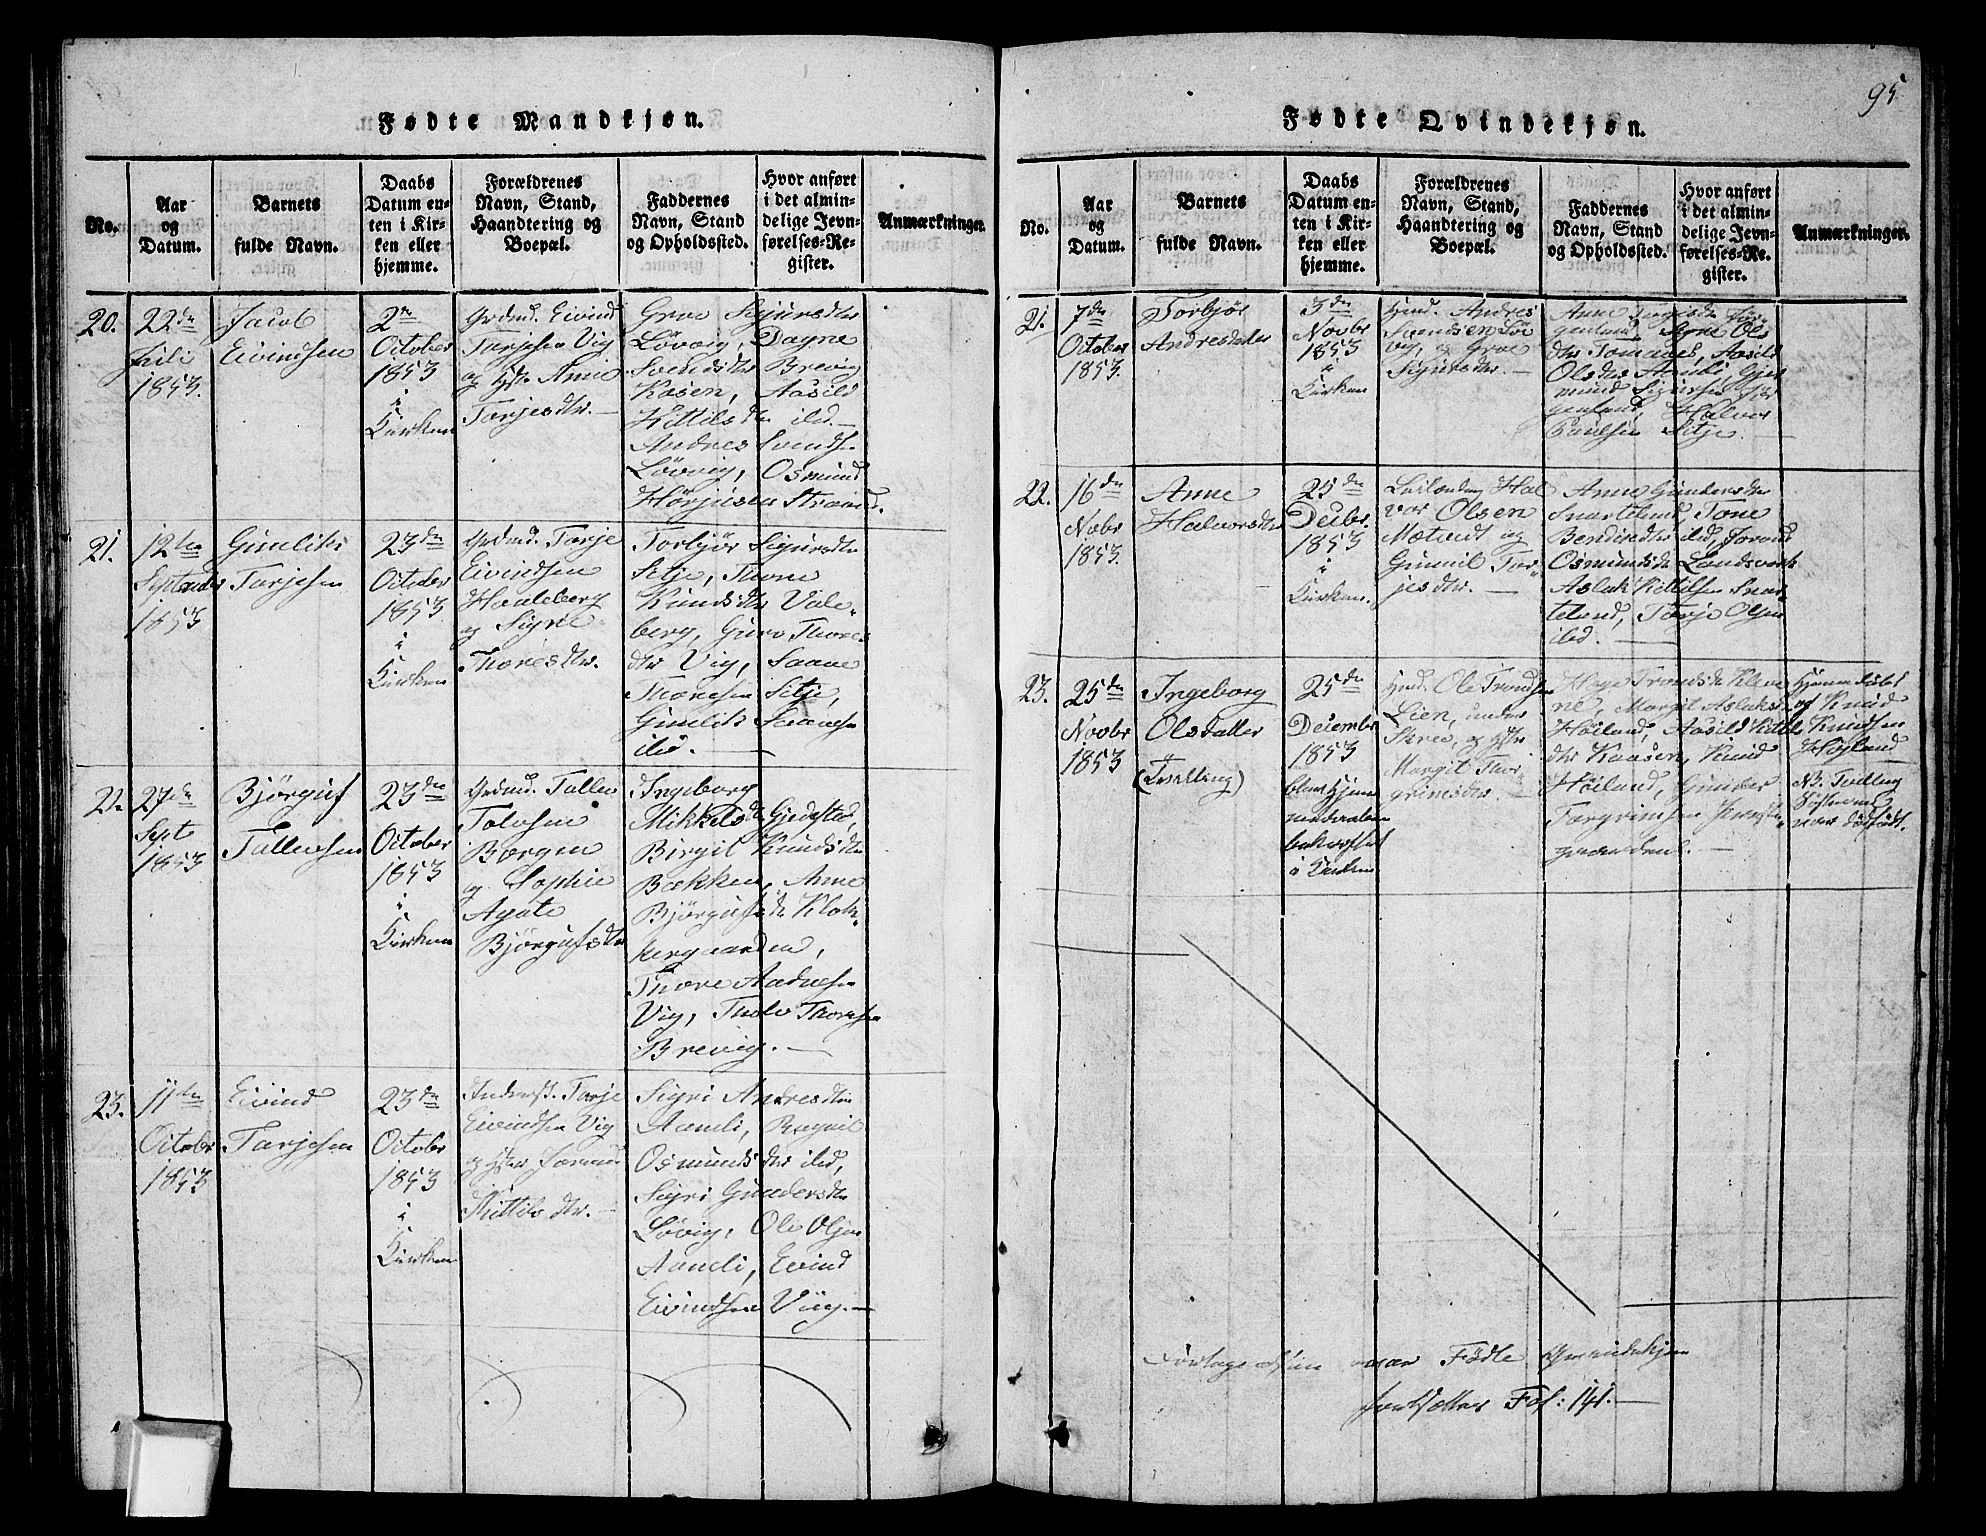 95
Fødte Mandkjøn.
No.
Aar
og
Datum.
Barnets
fulde Navn.
Daabs
Datum en-
ten i Kir-
ken eller
hjemme.
Forældrenes
Navn, Stand,
Haandtering og
Boepæl.
Faddernes
Navn, Stand
og Opholdssted.
Hvor anført
i det almin-
delige Jevn-
førelses-Re-
gister.
Anmærkninger.
20.
22de
Juli
1853.
Jacob
Eivindsen
2den
October
1853
i
Kirken
Grdmd. Eivind
Tarjesen Vig
og Hst. Anne
Tarjesdtr.
Groe Sigursdtr
Løvvig, Dagne
Svendsdtr Brevig
Kosen, Aasild
Kittilsdtr ibd.
Andres Svends.
Løvvig, Osmund
Hørjusen Strand.
21.
12te
Septader
1853
Gunliks
Tarjesen
23de
October
1853.
i
Kirken
Grdmd. Tarje
Eivindsen
Haaleberg
og Signe
Thoresdtr.
Torbjør Sigursdtr
Sitje, Thone
Knudsdtr Vale-
berg, Guro Thores-
dtr Vig, Saave
Thoresen Sitje,
Gunliks Saavesen
ibd.
22
27de
Sept
1853
Bjørguf
Tallevsen
23de
October
1853
i
Kirken
Grdmd. Tallev
Tolvsen
Borgen
og Sophie
Agate
Bjørgufsdtr
Ingeborg
Mikkelsdtr Gjedsted,
Birgit Knudsdtr
Bækken, Anne
Bjørgufsdtr Klok-
kergaarden,
Thore Aadnesen
Vig, Tholv Thoresen
Brevig.
23.
11te
October
1853
Eivind
Tarjesen
23de
October
1853
i
Kirken
Inderst. Tarje
Eivindsen Vig
og Hstr Joraand
Kittilsdtr.
Sigri Andresdtr
Aamli, Ragnil
Osmundsdtr ibd,
Sigri Gundersdtr
Løvig, Ole Olsen
Aamli, Eivind
Eivindsen Viig.
Fødte Qvindekjøn.
No.
Aar
og
Datum.
Barnets
fulde Navn.
Daabs
Datum en-
ten i Kir-
ken eller
hjemme.
Forældrenes
Navn, Stand,
Haandtering og
Boepæl.
Faddernes
Navn, Stand
og Opholdssted.
Hvor anført
i det almin-
delige Jevn-
førelses-Re-
gister.
Anmærkninger.
21.
7de
October
1853.
Torbjør
Andresdatter
3de
Novbr
1853
i
Kirken
Hmd. Andres
Svendsen Lø
vig, og Groe
Sigursdtr.
Anne Torgisdtr Jør-
genland, Signe Ols
dtr Tomages, Aasild
Olsdtr Aamli, Gjer
mund Sigursen Jør
genland, Halvor
Paulsen Sitje.
22.
16de
Novbr
1853.
Anne
Halvorsdtr
25de
Decbr.
1853
i
Kirken.
Leilænding Hal
vor Olsen
Motvedt og
Gunnil Tar-
jesdtr.
Anne Gundersdtr
Snartelund, Tone
Bendixdtr ibd, Joraand
Osmundsdtr Landsverk
Aslak Kittelsen Snar-
telund, Tarje Olsen
ibd.
23.
25de
Novbr
1853
Ingeborg
Olsdatter
(Tvilling)
25de
Decembr
1853
blev Hjem
medaaben
bekræftet
i Kirken
Hmd. Ole Trondsen
Lien, under
Skree, og Hstr
Margit Thor-
grimsdtr.
Haye Trondsdtr Klene
ne, Margit Aslaksd
Høiland, Aasild Kittils
dtr Kaasen, Knud
Høiland, Gunder
Torgrimsen
Hjemmedøbt
af Knud
Knudsen
Høyland
NB. Tvilling
Søsteren
var dødfødt.
over Fødte Qvindekjøn
fortsættes Fol: 141.